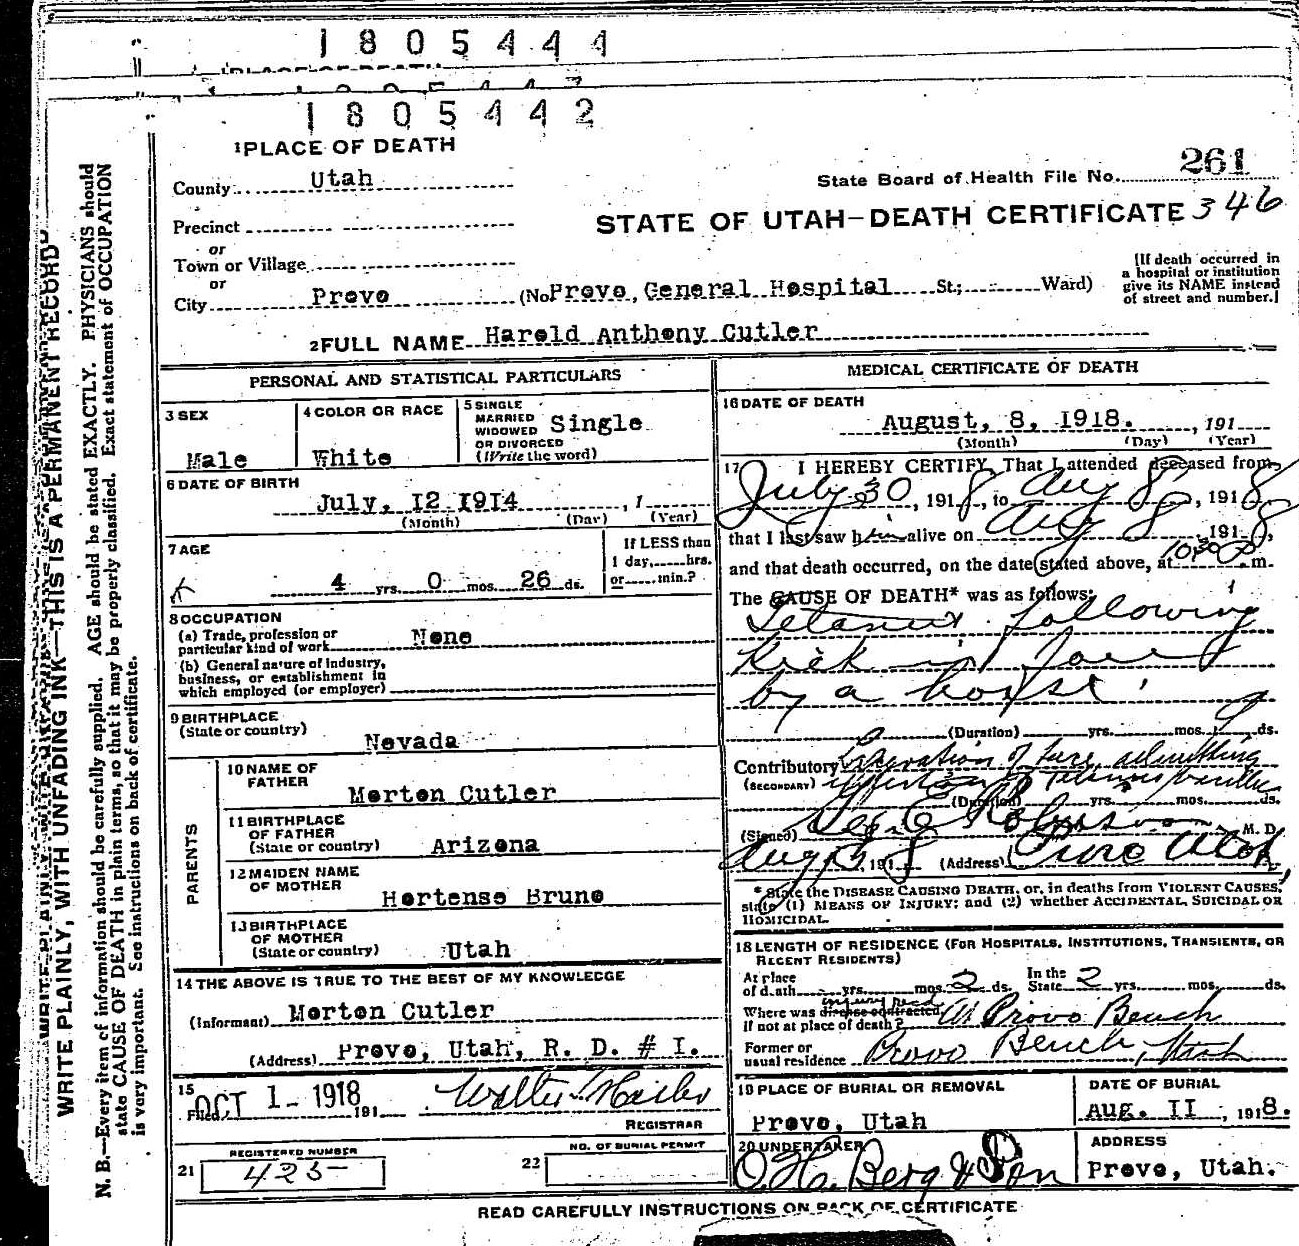 1805444
1805442
1 PLACE OF DEATH
County Utah
State Board of Health File No. 261
Precinct
STATE OF UTAH—DEATH CERTIFICATE 346
or
Town or Village
or
City Provo (No Provo, General Hospital St.; Ward)
[If death occurred in
a hospital or institution
give its NAME instead
of street and number.]
2 FULL NAME Harold Anthony Cutler
PERSONAL AND STATISTICAL PARTICULARS
3 SEX
Male
4 COLOR OR RACE
White
5 SINGLE
MARRIED
WIDOWED
OR DIVORCED
(Write the word)
Single
6 DATE OF BIRTH
July, 12 1914, 1
(Month) (Day) (Year)
7 AGE
4 yrs. 0 mos. 26 ds.
If LESS than
1 day, hrs.
or min.?
8 OCCUPATION
(a) Trade, profession or
particular kind of work None
(b) General nature of industry,
business, or establishment in
which employed (or employer)
9 BIRTHPLACE
(State or country)
Nevada
PARENTS
10 NAME OF
FATHER
Morton Cutler
11 BIRTHPLACE
OF FATHER
(State or country) Arizona
12 MAIDEN NAME
OF MOTHER
Hortense Bruno
13 BIRTHPLACE
OF MOTHER
(State or country) Utah
14 THE ABOVE IS TRUE TO THE BEST OF MY KNOWLEDGE
(Informant) Morton Cutler
(Address) Provo, Utah, R. D. # I.
15
Filed, OCT 1- 1918 191
Walter
REGISTRAR
REGISTERED NUMBER
21 425
NO. OF BURIAL PERMIT
22
MEDICAL CERTIFICATE OF DEATH
16 DATE OF DEATH
August, 8, 1918. , 191
(Month) (Day) (Year)
17 I HEREBY CERTIFY, That I attended deceased from
July 30, 1918, to Aug 8, 1918
that I last saw him alive on Aug 8, 1918,
and that death occurred, on the date stated above, at 10:30 P.m.
The CAUSE OF DEATH* was as follows:
Tetanus following
Kick in face
by a horse.
(Duration) yrs. mos. 9 ds.
Contributory Laceration of face admitting
(SECONDARY) infection of Tetanus bacillus
(Duration) yrs. mos. ds.
(Signed) Geo E Robinson M. D.
Aug 1918 (Address) Provo Utah
* State the DISEASE CAUSING DEATH, or, in deaths from VIOLENT CAUSES,
state (1) MEANS OF INJURY; and (2) whether ACCIDENTAL, SUICIDAL OR
HOMICIDAL.
18 LENGTH OF RESIDENCE (FOR HOSPITALS, INSTITUTIONS, TRANSIENTS, OR
RECENT RESIDENTS)
At place
of death yrs. mos. 2 ds.
In the
State 2 yrs. mos. ds.
injury recd
Where was disease contracted
if not at place of death? At Provo Bench
Former or
usual residence Provo Bench, Utah
19 PLACE OF BURIAL OR REMOVAL
Provo, Utah
DATE OF BURIAL
Aug. II, 1918.
20 UNDERTAKER
O. H. Berg & Son
ADDRESS
Provo, Utah.
READ CAREFULLY INSTRUCTIONS ON BACK OF CERTIFICATE
WRITE PLAINLY, WITH UNFADING INK—THIS IS A PERMANENT RECORD
N. B.—Every item of information should be carefully supplied. AGE should be stated EXACTLY. PHYSICIANS should
state CAUSE OF DEATH in plain terms, so that it may be properly classified. Exact statement of OCCUPATION
is very important. See instructions on back of certificate.